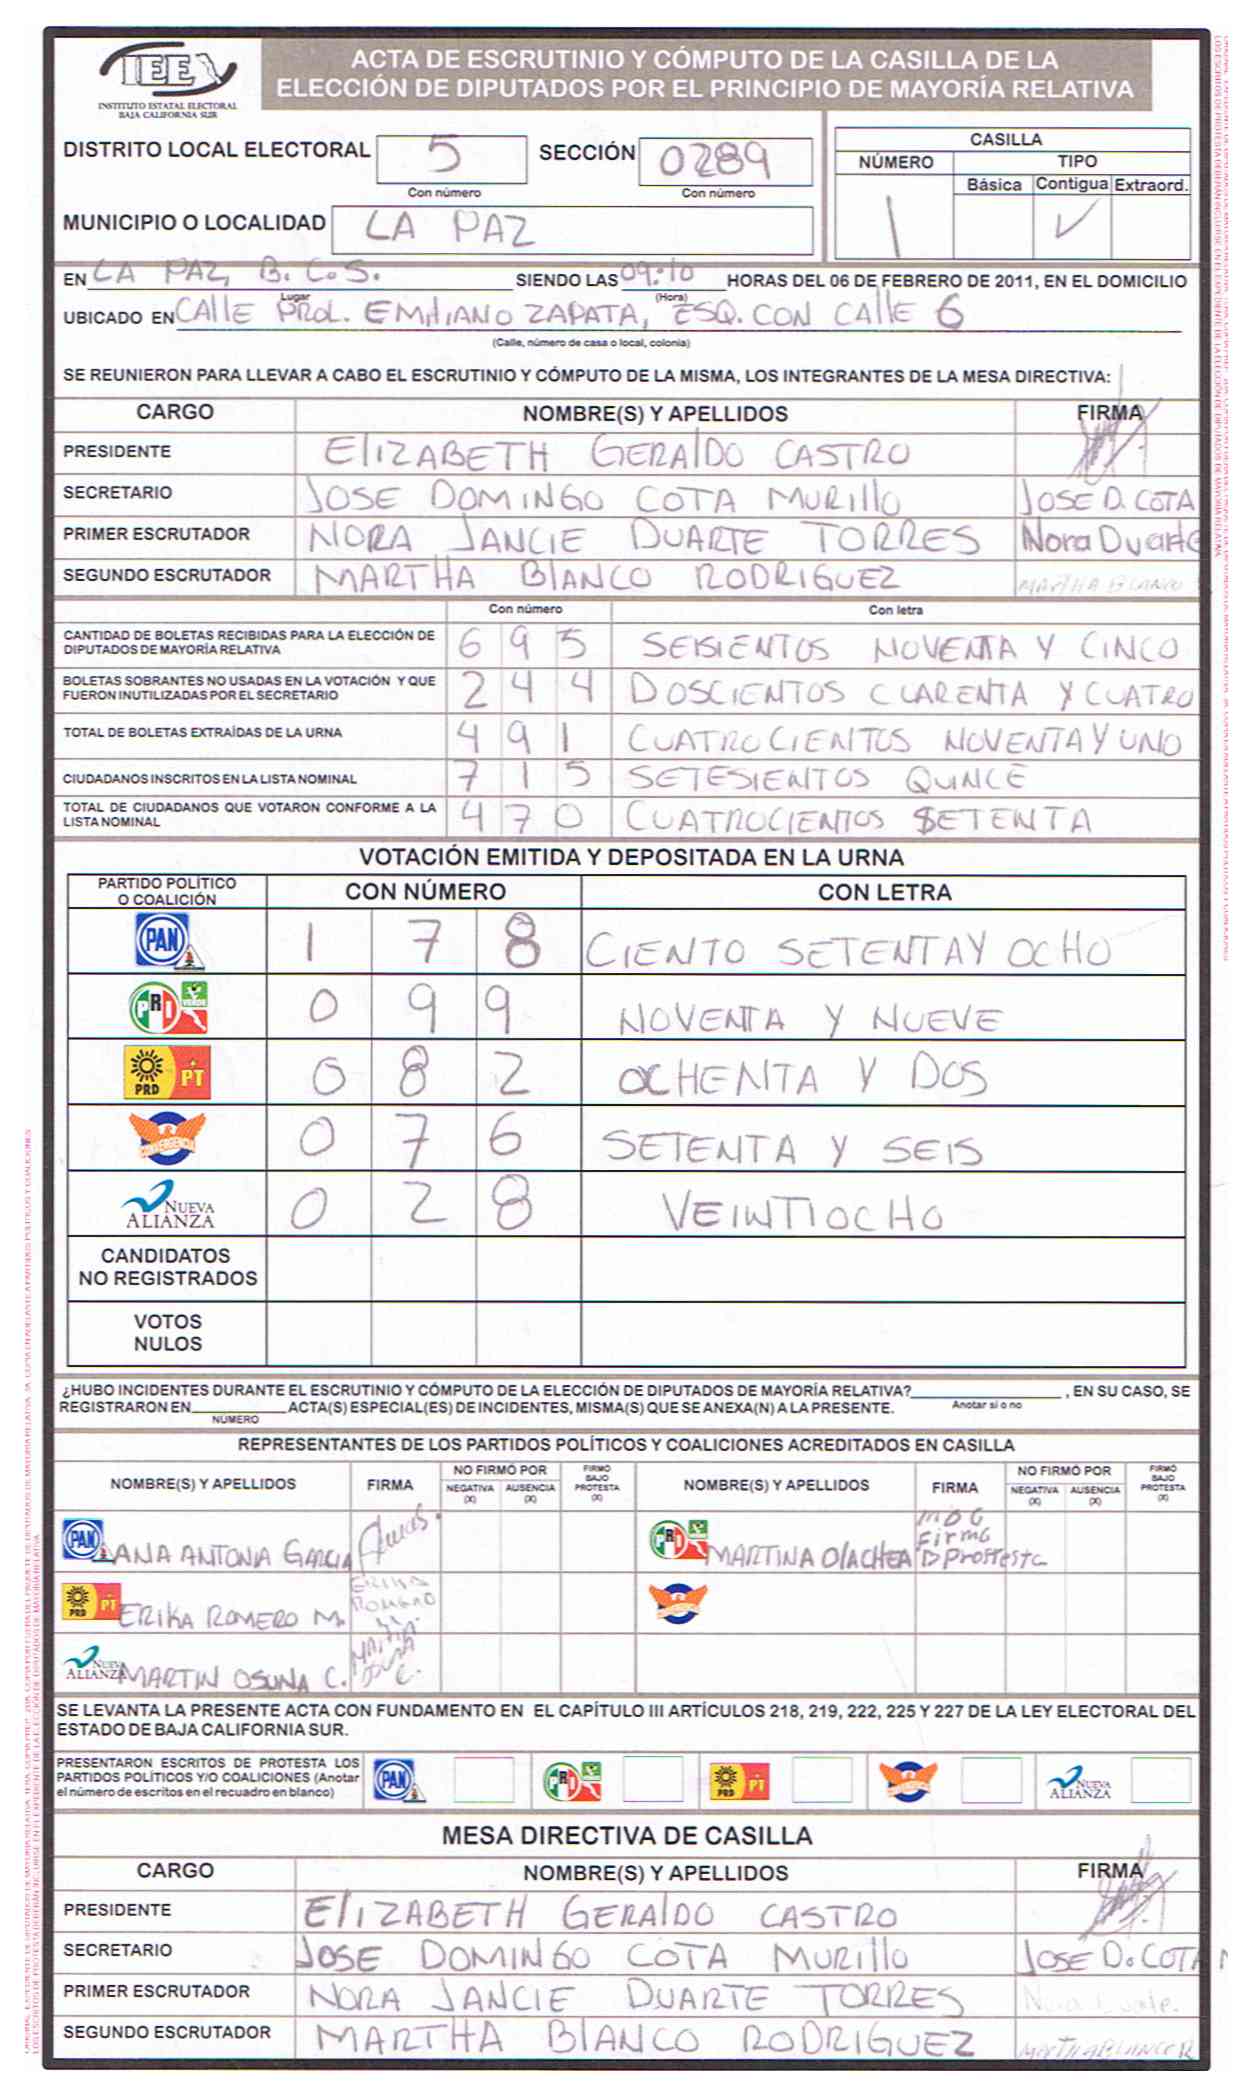 IEE
INSTITUTO ESTATAL ELECTORAL
BAJA CALIFORNIA SUR
ACTA DE ESCRUTINIO Y CÓMPUTO DE LA CASILLA DE LA
ELECCIÓN DE DIPUTADOS POR EL PRINCIPIO DE MAYORÍA RELATIVA
DISTRITO LOCAL ELECTORAL 5 SECCIÓN 0289
Con número Con número
MUNICIPIO O LOCALIDAD LA PAZ
CASILLA
NÚMERO TIPO
Básica Contigua Extraord.
1 ✓
EN LA PAZ, B.C.S. SIENDO LAS 09:10 HORAS DEL 06 DE FEBRERO DE 2011, EN EL DOMICILIO
Lugar (Hora)
UBICADO EN CALLE PROL. EMILIANO ZAPATA, ESQ. CON CALLE 6
(Calle, número de casa o local, colonia)
SE REUNIERON PARA LLEVAR A CABO EL ESCRUTINIO Y CÓMPUTO DE LA MISMA, LOS INTEGRANTES DE LA MESA DIRECTIVA:
CARGO NOMBRE(S) Y APELLIDOS FIRMA
PRESIDENTE ElIZABETH GERAlDO CASTRO
SECRETARIO JOSE DOMINGO COTA MURIllo JOSE D. COTA
PRIMER ESCRUTADOR NORA JANCIE DUARTE TORRES Nora Duarte
SEGUNDO ESCRUTADOR MARTHA BlANCO RODRIGUEZ MARTHA BLANCO
Con número Con letra
CANTIDAD DE BOLETAS RECIBIDAS PARA LA ELECCIÓN DE
DIPUTADOS DE MAYORÍA RELATIVA 695 SEISIENTOS NOVENTA Y CINCO
BOLETAS SOBRANTES NO USADAS EN LA VOTACIÓN Y QUE
FUERON INUTILIZADAS POR EL SECRETARIO 244 DOSCIENTOS CUARENTA Y CUATRO
TOTAL DE BOLETAS EXTRAÍDAS DE LA URNA 491 CUATROCIENTOS NOVENTA Y UNO
CIUDADANOS INSCRITOS EN LA LISTA NOMINAL 715 SETESIENTOS QUINCE
TOTAL DE CIUDADANOS QUE VOTARON CONFORME A LA
LISTA NOMINAL 470 CUATROCIENTOS SETENTA
VOTACIÓN EMITIDA Y DEPOSITADA EN LA URNA
PARTIDO POLÍTICO
O COALICIÓN CON NÚMERO CON LETRA
PAN 1 7 8 CIENTO SETENTA Y OCHO
PRI VERDE 0 9 9 NOVENTA Y NUEVE
PRD PT 0 8 2 OCHENTA Y DOS
CONVERGENCIA 0 7 6 SETENTA Y SEIS
NUEVA ALIANZA 0 2 8 VEINTIOCHO
CANDIDATOS
NO REGISTRADOS
VOTOS
NULOS
¿HUBO INCIDENTES DURANTE EL ESCRUTINIO Y CÓMPUTO DE LA ELECCIÓN DE DIPUTADOS DE MAYORÍA RELATIVA? , EN SU CASO, SE
Anotar si o no
REGISTRARON EN ACTA(S) ESPECIAL(ES) DE INCIDENTES, MISMA(S) QUE SE ANEXA(N) A LA PRESENTE.
NÚMERO
REPRESENTANTES DE LOS PARTIDOS POLÍTICOS Y COALICIONES ACREDITADOS EN CASILLA
NOMBRE(S) Y APELLIDOS FIRMA NO FIRMÓ POR NEGATIVA (X) AUSENCIA (X) FIRMÓ BAJO PROTESTA (X) NOMBRE(S) Y APELLIDOS FIRMA NO FIRMÓ POR NEGATIVA (X) AUSENCIA (X) FIRMÓ BAJO PROTESTA (X)
PAN ANA ANTONIA GARCIA PRI MARTINA OlACHEA Firmó
PRD PT ERIKA ROMERO M. ERIKA ROMERO
NUEVA ALIANZA MARTIN OSUNA C.
SE LEVANTA LA PRESENTE ACTA CON FUNDAMENTO EN EL CAPÍTULO III ARTÍCULOS 218, 219, 222, 225 Y 227 DE LA LEY ELECTORAL DEL
ESTADO DE BAJA CALIFORNIA SUR.
PRESENTARON ESCRITOS DE PROTESTA LOS
PARTIDOS POLÍTICOS Y/O COALICIONES (Anotar
el número de escritos en el recuadro en blanco)
PAN PRI PRD PT NUEVA ALIANZA
MESA DIRECTIVA DE CASILLA
CARGO NOMBRE(S) Y APELLIDOS FIRMA
PRESIDENTE ElIZABETH GERAlDO CASTRO
SECRETARIO JOSE DOMINGO COTA MURIllo JOSE D. COTA
PRIMER ESCRUTADOR NORA JANCIE DUARTE TORRES
SEGUNDO ESCRUTADOR MARTHA BlANCO RODRIGUEZ MARTHA BLANCO R